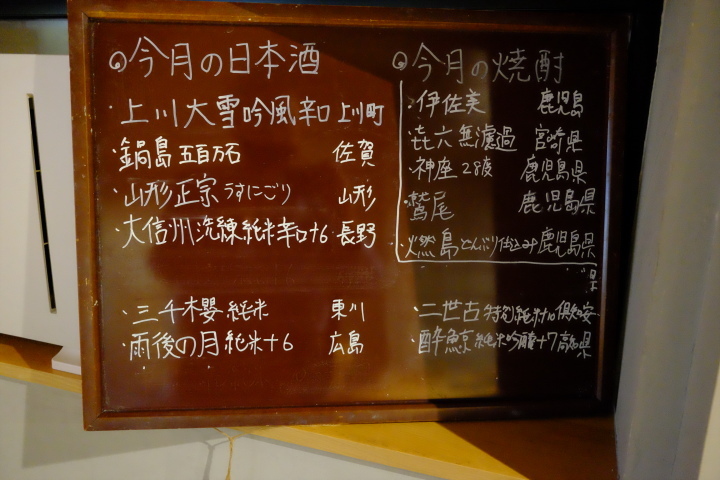 今月の日本酒
・上川大雪吟風辛口 上川町
・鍋島 五百万石 佐賀
・山形正宗 うすにごり 山形
・大信州洗練純米辛口+6 長野
・三千櫻 純米 東川
・雨後の月 純米+6 広島
今月の焼酎
・伊佐美 鹿児島
・㐂六無濾過 宮崎県
・神座 28度 鹿児島県
・鷲尾 鹿児島県
・燃島 どんぶり仕込み 鹿児島県
県
・二世古 特別純米+10 倶知安
・酔鯨 純米吟醸+7 高知県